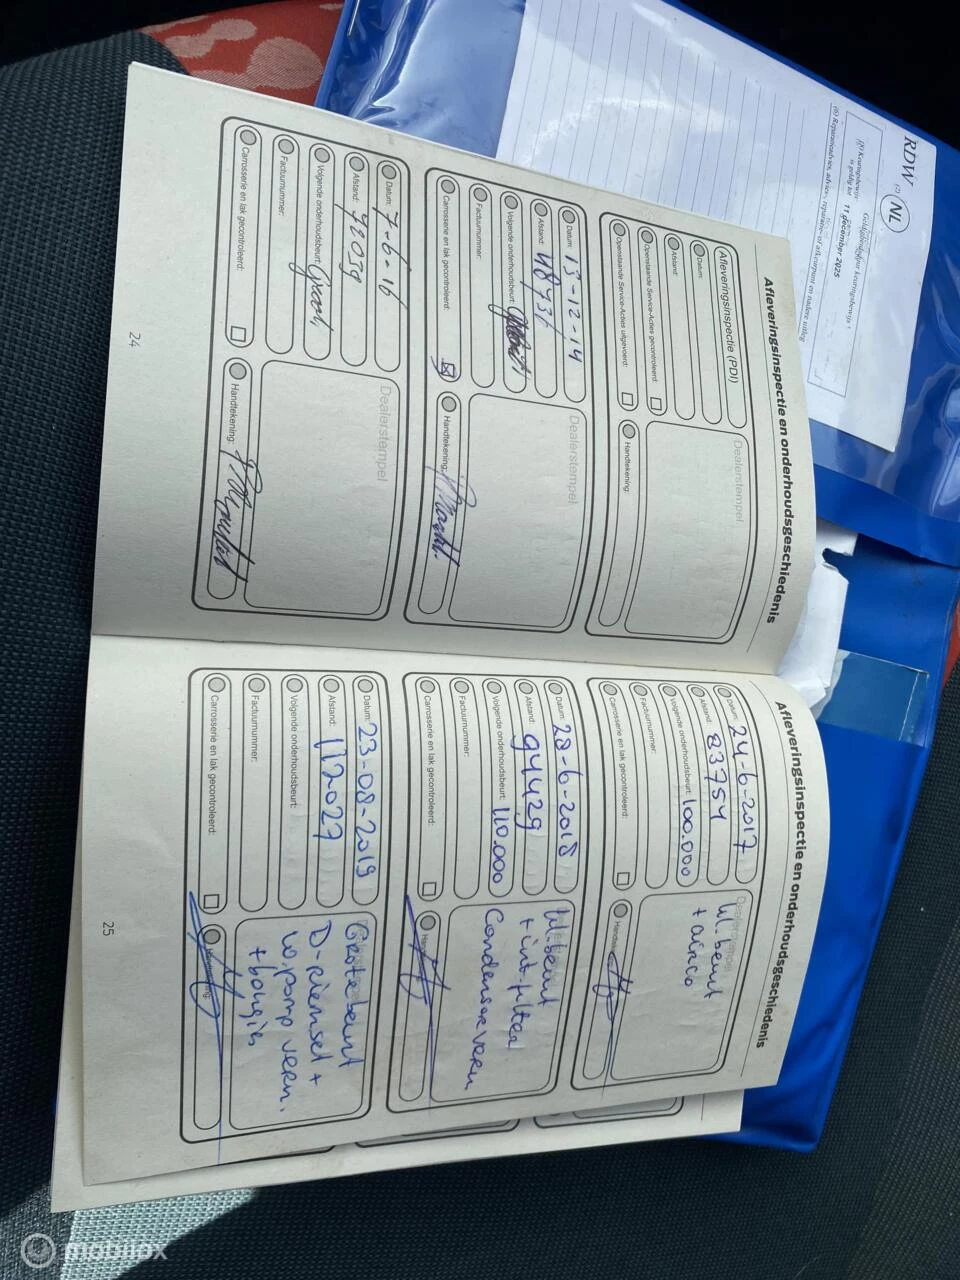 Afleveringsinspectie en onderhoudsgeschiedenis
Afleveringsinspectie (PDI)
Datum:
Afstand:
Openstaande Service-Acties gecontroleerd:
Openstaande Service-Acties uitgevoerd:
Dealerstempel
Handtekening:
Datum: 13-12-14
Afstand:
Volgende onderhoudsbeurt:
Factuurnummer:
Carrosserie en lak gecontroleerd:
Dealerstempel
Handtekening:
Datum: 7-6-16
Afstand: 72059
Volgende onderhoudsbeurt: Groot
Factuurnummer:
Carrosserie en lak gecontroleerd:
Dealerstempel
Handtekening:
24
Afleveringsinspectie en onderhoudsgeschiedenis
Datum: 24-6-2017
Afstand: 83754
Volgende onderhoudsbeurt: 100.000
Factuurnummer:
Carrosserie en lak gecontroleerd:
Dealerstempel
kl. beurt
+ airco
Datum: 28-6-2018
Afstand: 94429
Volgende onderhoudsbeurt: 110.000
Factuurnummer:
Carrosserie en lak gecontroleerd:
kl. beurt
+ int-filter
Condensor vern
Datum: 23-08-2019
Afstand: 112027
Volgende onderhoudsbeurt:
Factuurnummer:
Carrosserie en lak gecontroleerd:
Grote beurt
D-riemset +
w.pomp vern.
+ bougies
Handtekening:
25
RDW
NL
Keuringsbewijs
is geldig tot 11 december 2025
mobilox